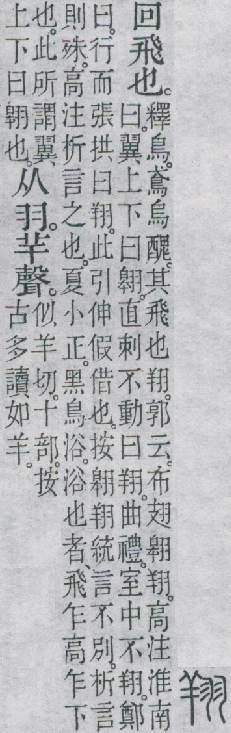 翔
回飛也。釋鳥。鳶烏醜。其飛也翔。郭云。布翅翱翔。高注淮南
曰。翼上下曰翱。直刺不動曰翔。曲禮。室中不翔。鄭
曰。行而張拱曰翔。此引伸假借也。按翱翔統言不別。析言
則殊。高注析言之也。夏小正。黑鳥浴。浴也者、飛乍高乍下
也。此所謂翼
上下曰翱也。从羽。羊聲。似羊切。十部。按
古多讀如羊。